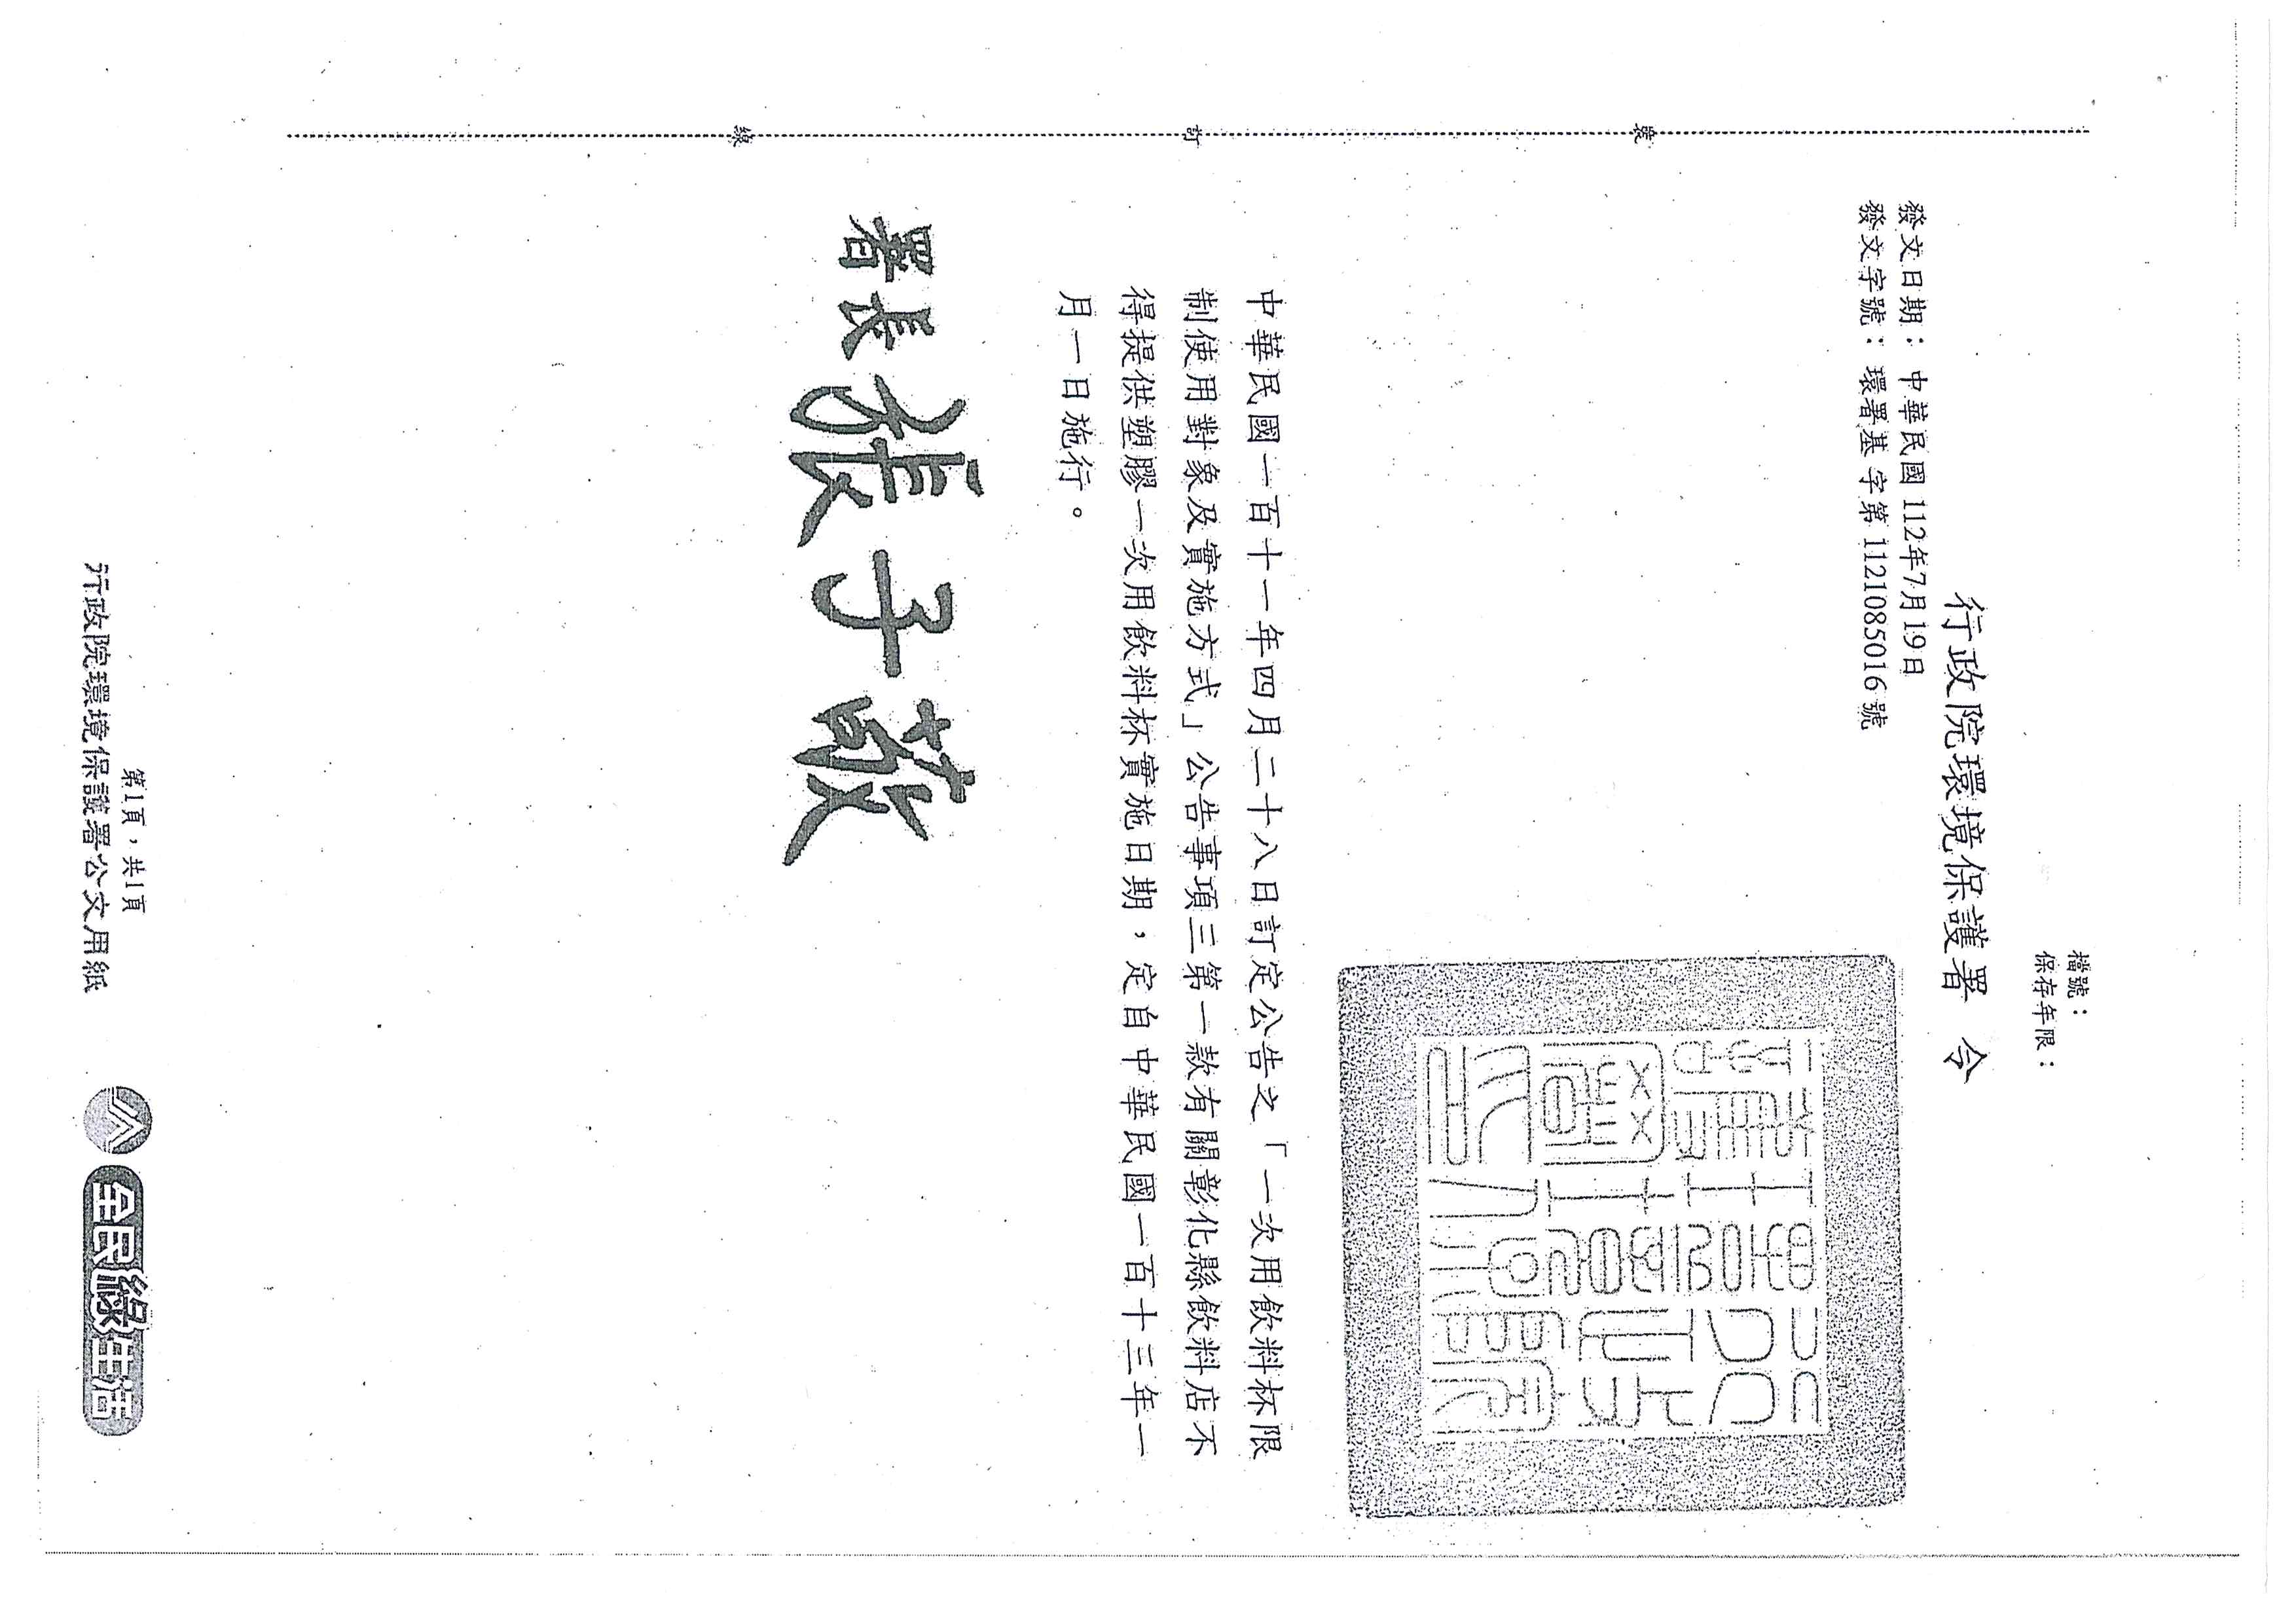 檔號：
保存年限：
行政院環境保護署 令
發文日期：中華民國112年7月19日
發文字號：環署基字第1121085016號
中華民國一百十一年四月二十八日訂定公告之「一次用飲料杯限
制使用對象及實施方式」公告事項三第一款有關彰化縣飲料店不
得提供塑膠一次用飲料杯實施日期，定自中華民國一百十三年一
月一日施行。
署長 張子敬
裝
訂
線
第1頁，共1頁
行政院環境保護署公文用紙
全民綠生活